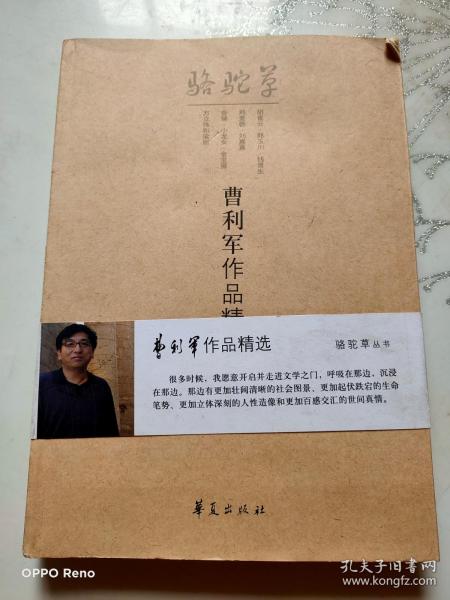 骆驼草
曹利军作品精
曹利军作品精选
骆驼草丛书
很多时候，我愿意开启并走进文学之门，呼吸在那边，沉浸
在那边。那边有更加壮阔清晰的社会图景、更加起伏跌宕的生命
笔势、更加立体深刻的人性造像和更加百感交汇的世间真情。
华夏出版社
OPPO Reno
孔夫子旧书网
www.kongfz.com